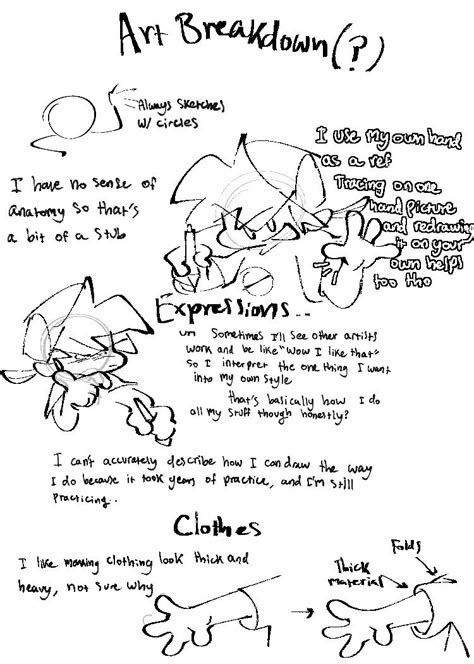 Art Breakdown(?)
Always sketches
w/ circles
I have no sense of
anatomy so that's
a bit of a stub
I use my own hand
as a ref
Tracing on one
hand picture
and redrawing
it on your
own helps
too tho
Expressions..
um Sometimes I'll see other artists
work and be like "wow I like that"
so I interpret the one thing I want
into my own style
that's basically how I do
all my stuff though honestly?
I can't accurately describe how I can draw the way
I do because it took years of practice, and I'm still
practicing..
Clothes
I like making clothing look thick and
heavy, not sure why
Folds
Thick
material